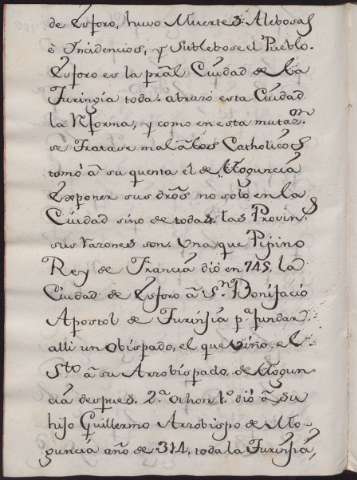 de Esforo, huvo Muertes Alebosas
è Incidencios, y Sublebose el Pueblo.
Esforo es la pral Ciudad de la
Turingia toda: abrazò esta Ciudad
la Rforma, y como en esta mutaz.on
se tratase mal a los Catholicos
tomó a su quenta el de Moguncia
Exponer sus dros no solo en la
Ciudad sino de todas las Provins
sus razones son: Una que Pipino
Rey de Francia dió en 745. la
Ciudad de Esforo à Sn. Bonifacio
Apostol de Turingia pa. fundar
alli un Obispado, el que vino, el
Sto a su Arzobispado, de Mogun
cia despues. 2.a Othon 1.o dió à su
hijo Guillermo Arzobispo de Mo
guncia año de 314, toda la Turingia,